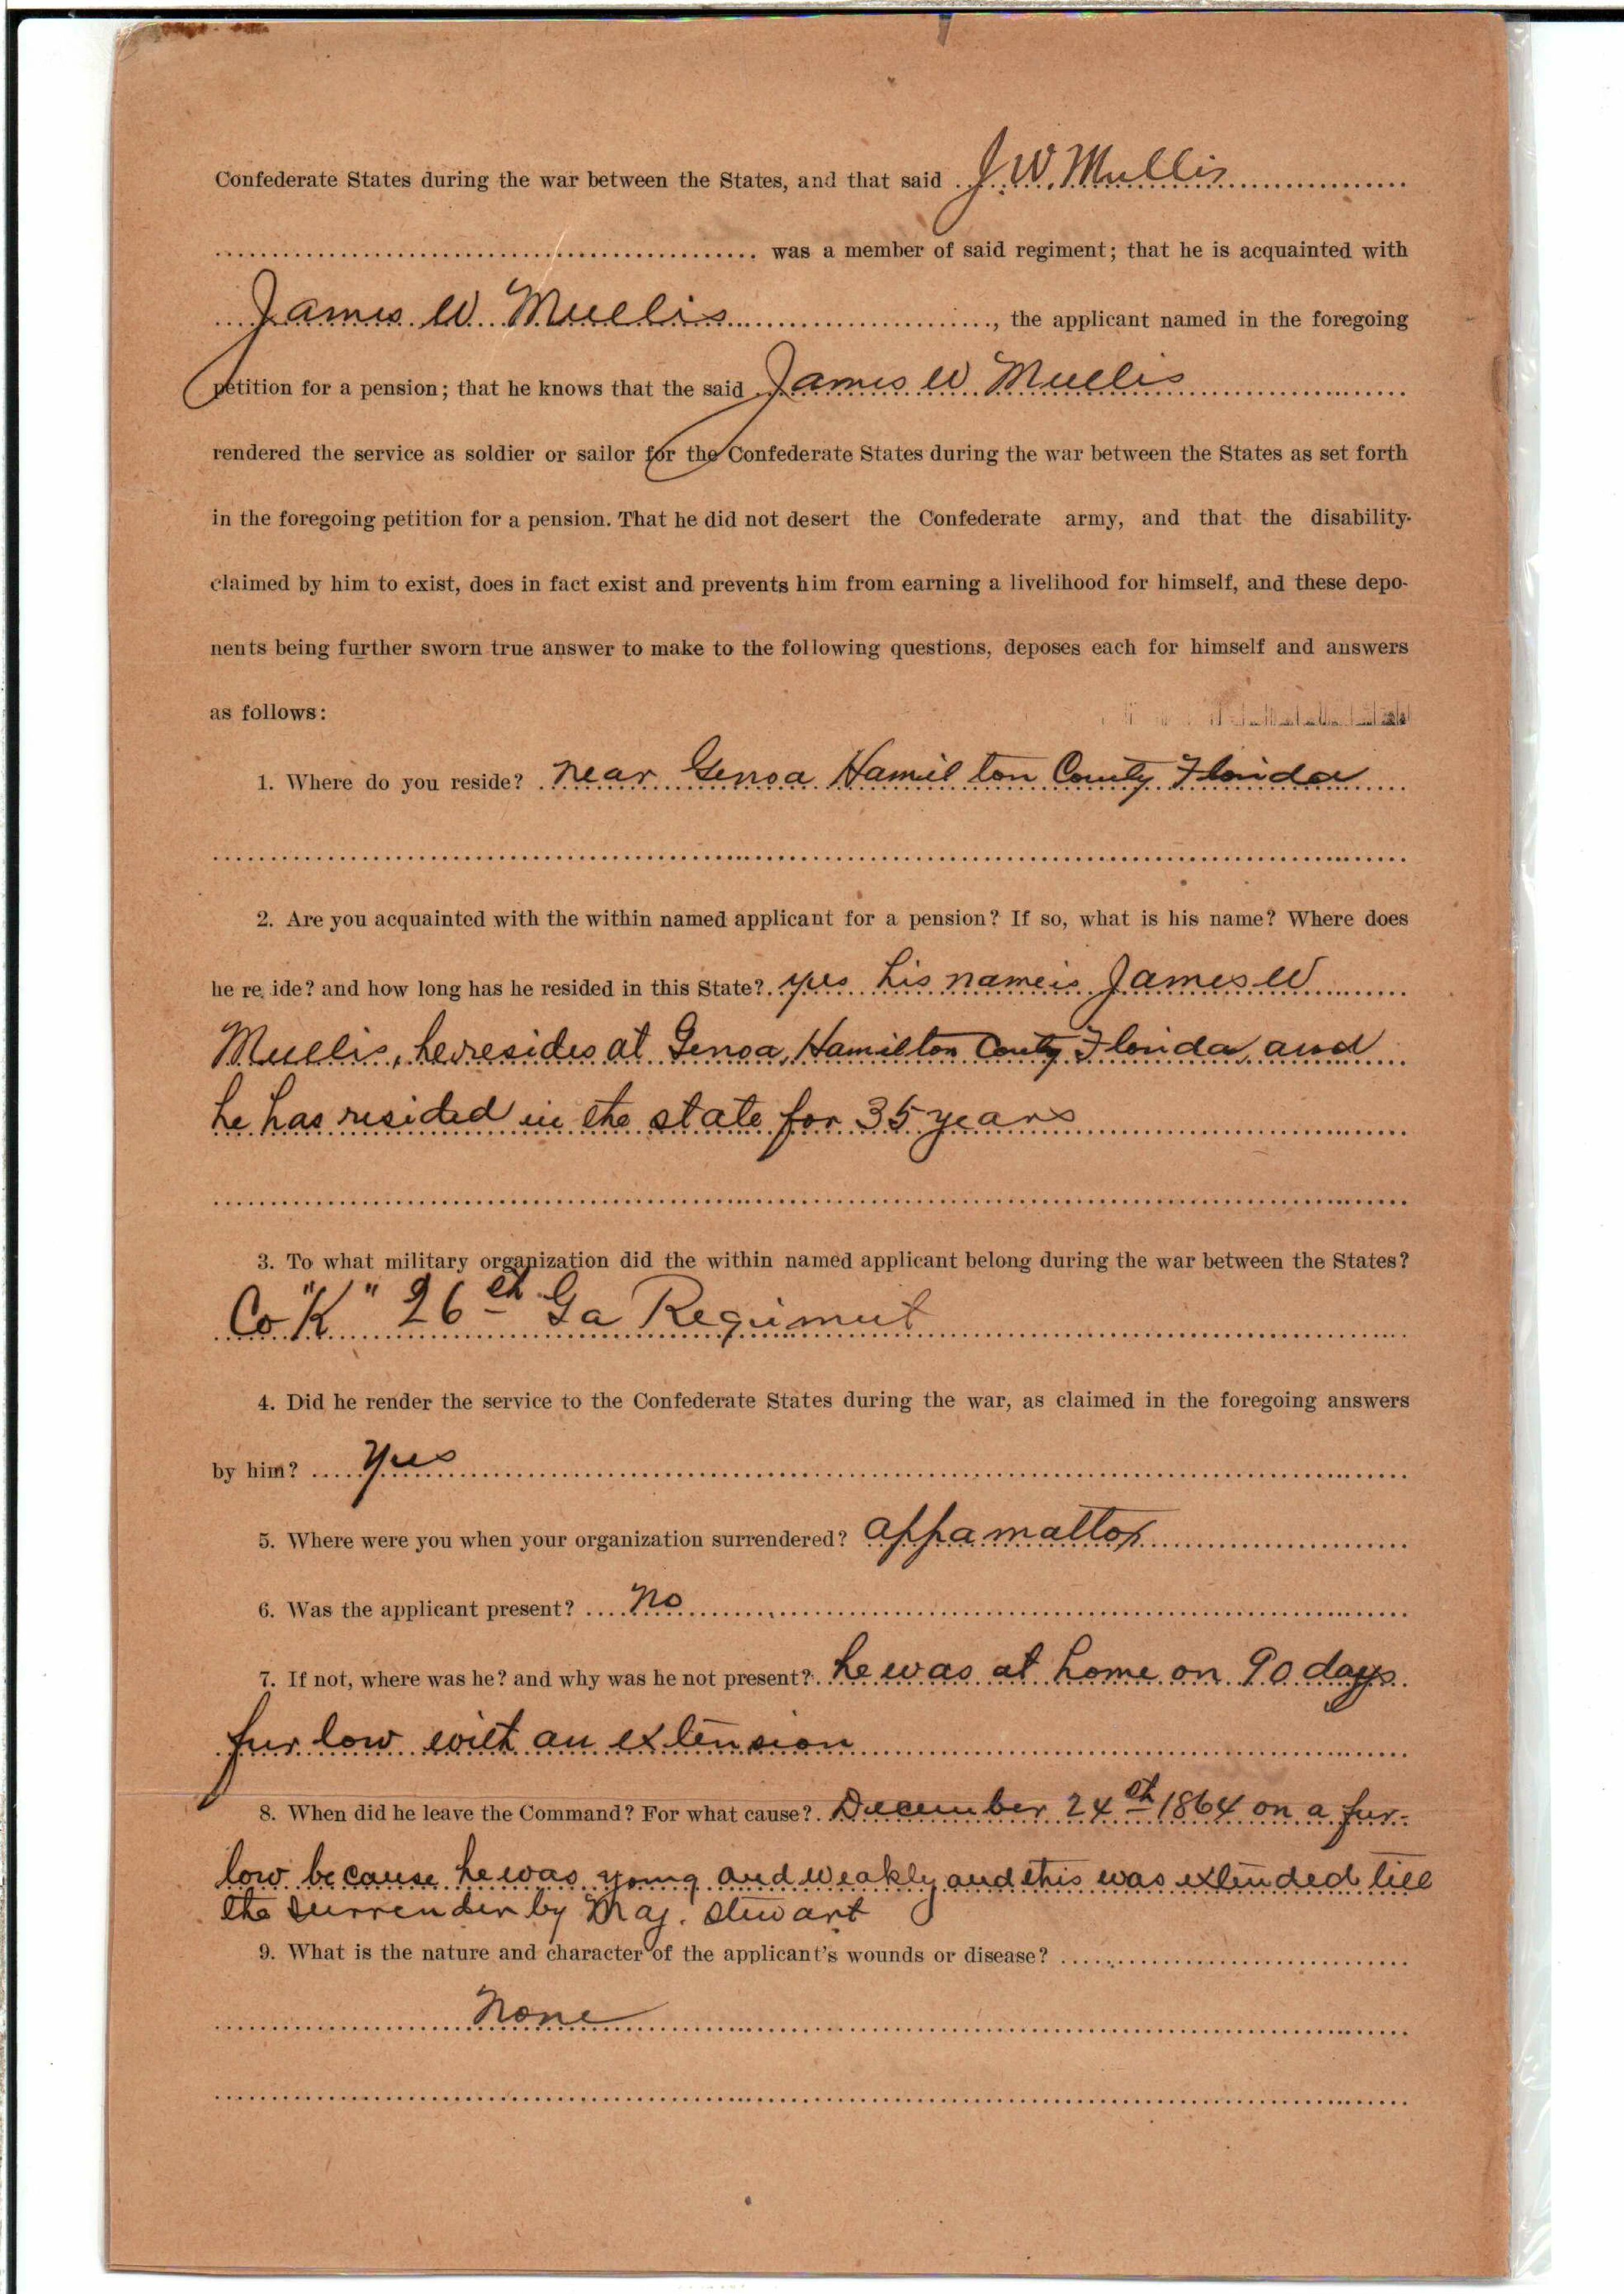 Confederate States during the war between the States, and that said J. W. Mullis
was a member of said regiment; that he is acquainted with
James W. Mullis, the applicant named in the foregoing
petition for a pension; that he knows that the said James W. Mullis
rendered the service as soldier or sailor for the Confederate States during the war between the States as set forth
in the foregoing petition for a pension. That he did not desert the Confederate army, and that the disability
claimed by him to exist, does in fact exist and prevents him from earning a livelihood for himself, and these depo-
nents being further sworn true answer to make to the following questions, deposes each for himself and answers
as follows:
1. Where do you reside? near Genoa Hamilton County Florida
2. Are you acquainted with the within named applicant for a pension? If so, what is his name? Where does
he re ide? and how long has he resided in this State? yes his name is James W
Mullis, he resides at Genoa, Hamilton County Florida, and
he has resided in the state for 35 years
3. To what military organization did the within named applicant belong during the war between the States?
Co "K" 26th Ga Regiment
4. Did he render the service to the Confederate States during the war, as claimed in the foregoing answers
by him? Yes
5. Where were you when your organization surrendered? appamattox
6. Was the applicant present? No
7. If not, where was he? and why was he not present? he was at home on 90 days
furlow with an extension
8. When did he leave the Command? For what cause? December 24th 1864 on a fur-
low because he was young and weakly and this was extended till
the surrender by Maj. Stewart
9. What is the nature and character of the applicant's wounds or disease?
None